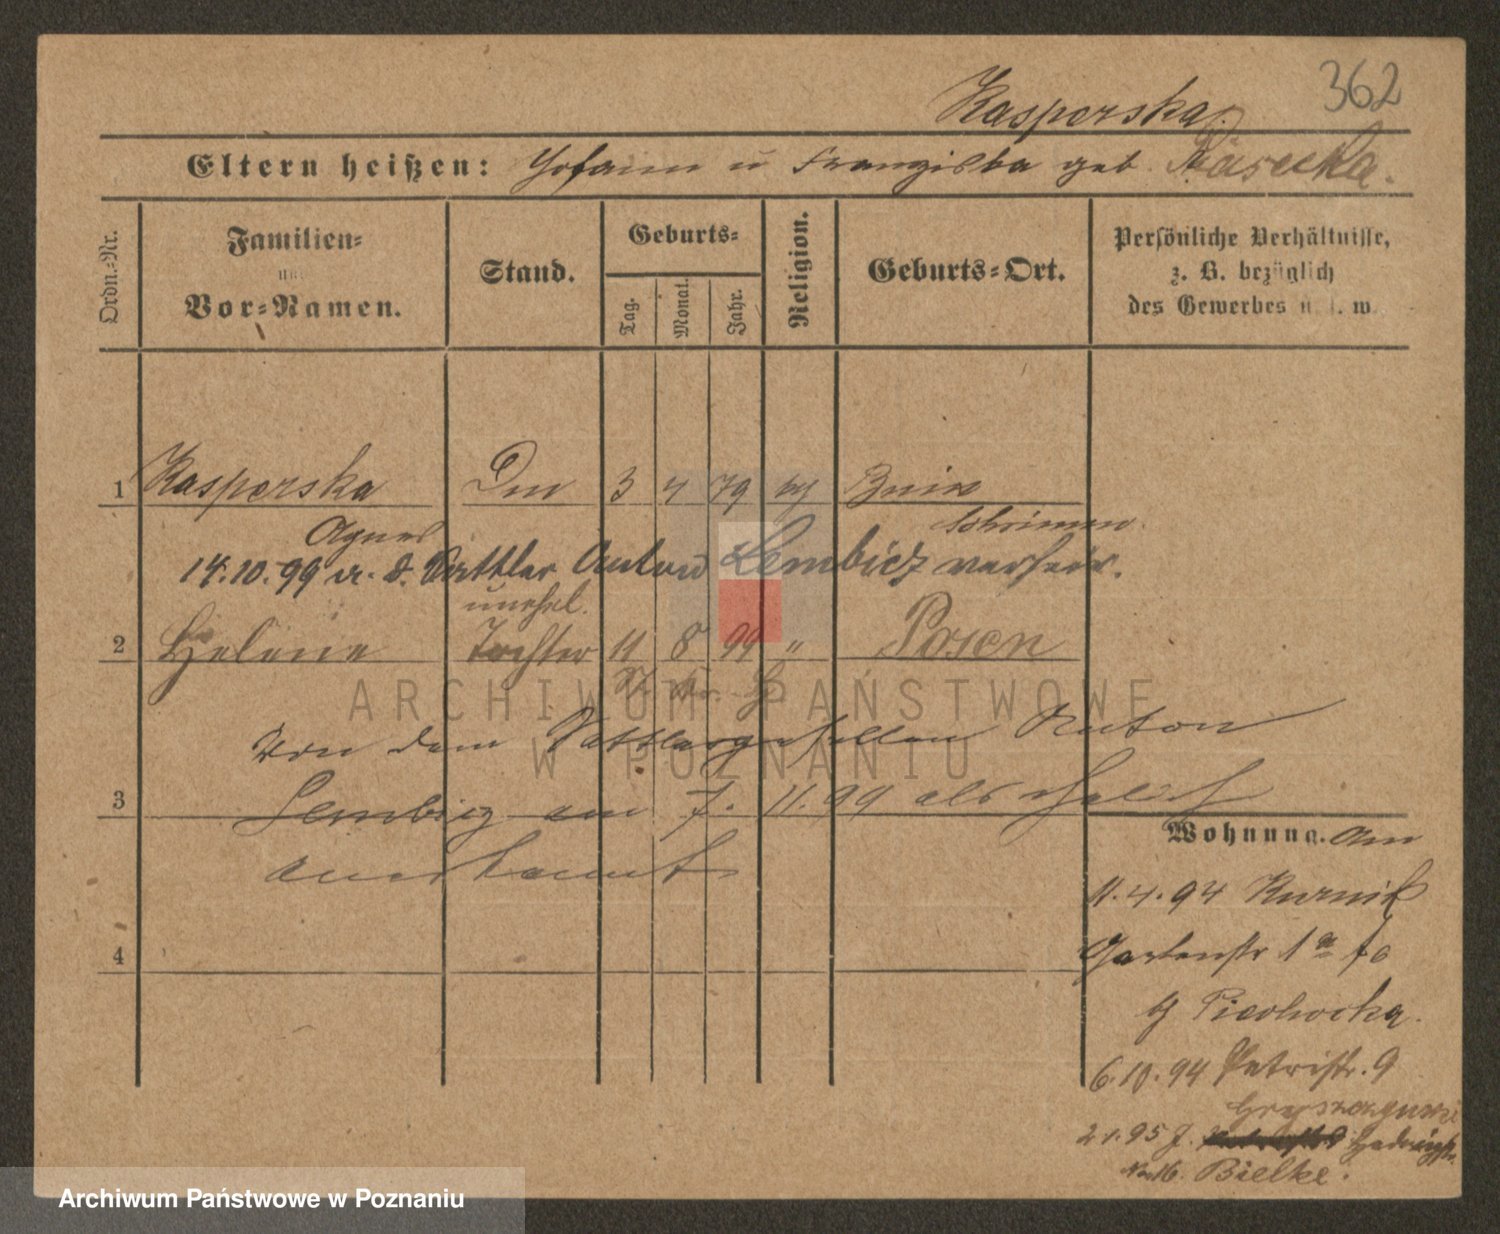 362
Kasperska
Eltern heißen: Johann u Franziska geb.
Ordn.-Nr.
Familien-
und
Vor-Namen.
Stand.
Geburts-
Tag.
Monat.
Jahr.
Religion.
Geburts-Ort.
Persönliche Verhältnisse,
z. B. bezüglich
des Gewerbes u. s. w.
1 Kasperska 3 4 79 Bnin
Agnes Schrimm
14.10.99 a. d. Sattler Anton Lembicz verheir.
unehel.
2 Helene Tochter 11 8 99 " Posen
von dem Sattlergesellen Anton
3 Lembicz am 7. 11. 99 als
anerkannt
4
Wohnung. Am
11.4.94 Kurnik
Gartenstr 1a
b/ Piechocka.
6.10.94 Petristr. 9
2 1.95 J.
No 16. Bielke.
ARCHIWUM PAŃSTWOWE
W POZNANIU
Archiwum Państwowe w Poznaniu